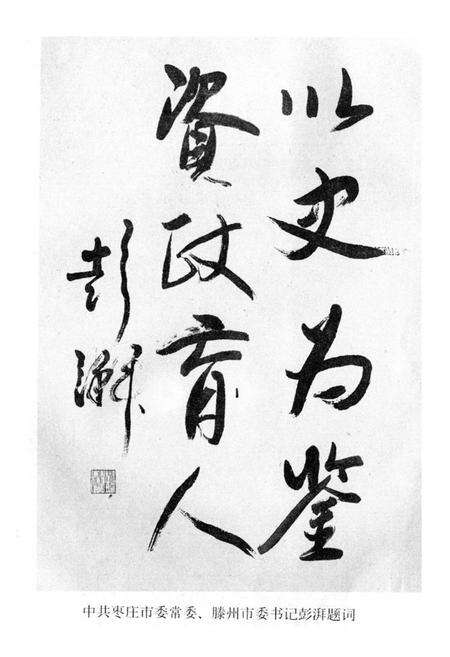 以史为鉴
资政育人
彭湃
中共枣庄市委常委、滕州市委书记彭湃题词